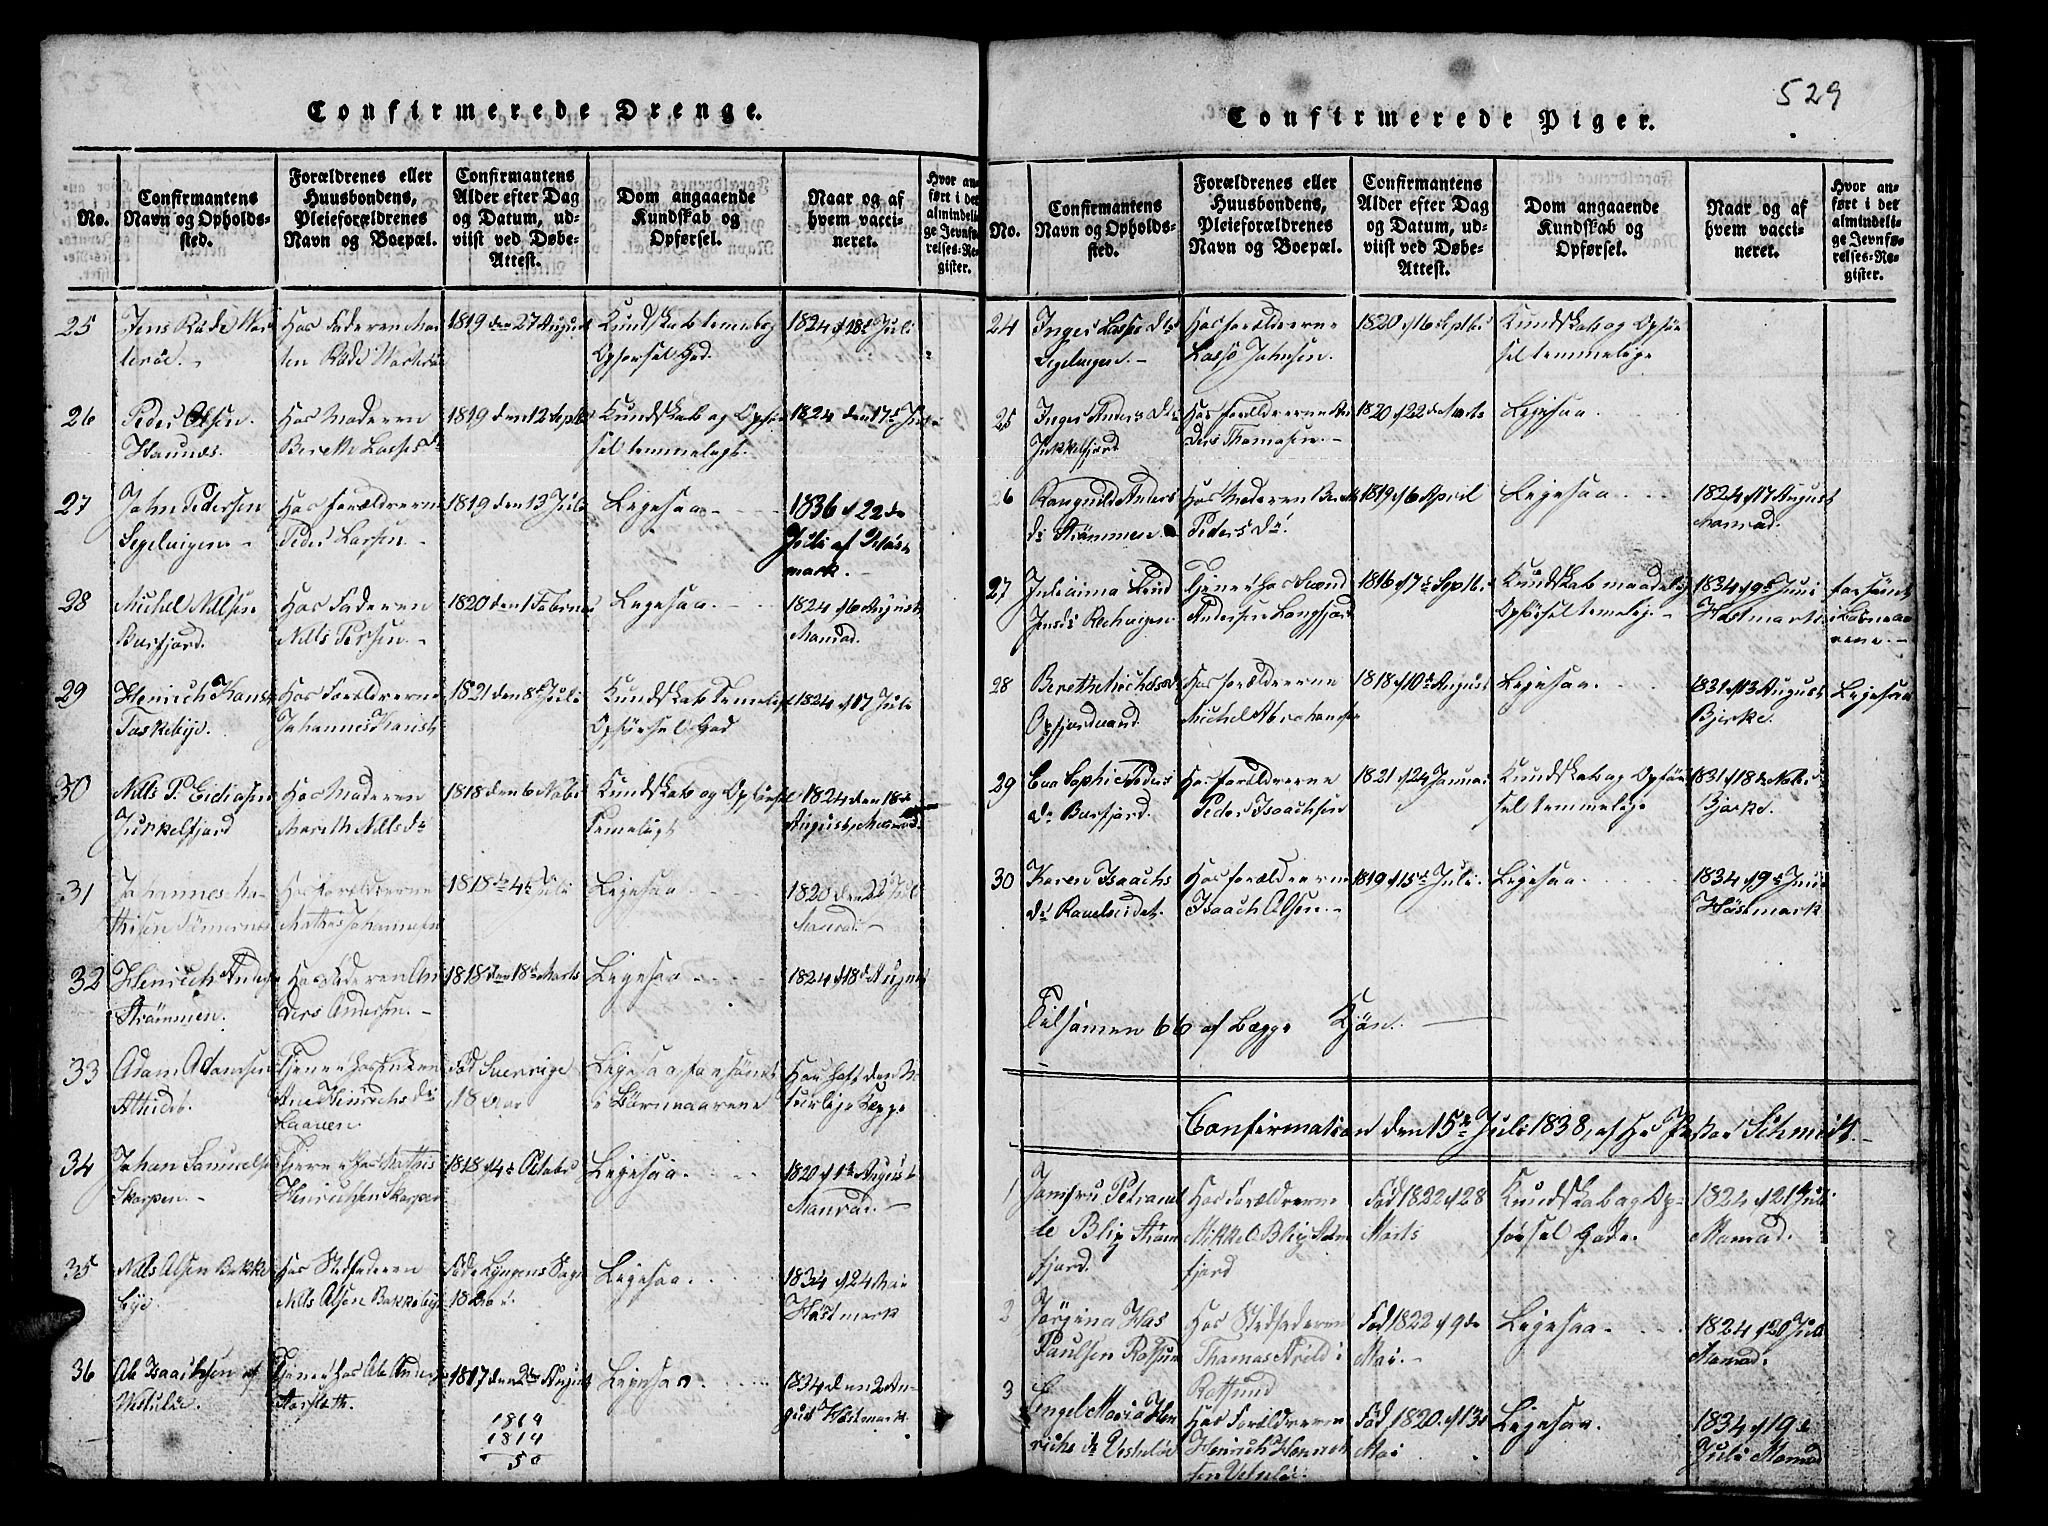 529
Confirmerede Drenge.
No.
Confirmantens
Navn og Opholds-
sted.
Forældrenes eller
Huusbondens,
Pleieforældrenes
Navn og Boepæl.
Confirmantens
Alder efter Dag
og Datum, ud-
viist ved Døbe-
Attest.
Dom angaaende
Kundskab og
Opførsel.
Naar og af
hvem vacci-
neret.
Hvor an-
ført i det
almindeli-
ge Jevnfø-
relses-Re-
gister.
25
Jens Råde
Hos Faderen
ten Råde
1819 den 27 August
Kundskab
Opførsel God.
1824 d 18de Juli
26
Peder Olsen
Haunæs.
Hos Moderen
Berethe
1819 den 12 Septb
Kundskab og Opfør
sel temmeligt.
1824 den 17de
27
John Pedersen
Segelvigen
Hos forældrerne
Peder Larsen
1819 den 13 Juli
Ligesaa
1836 d 22de
Juli af Høst
mark.
28
Michel Nilsen
Burfjord.
Hos Faderen
Nills Persen
1820 den 1 Februa
Ligesaa
1824 d 6 August
Monrad.
29
Henrich Hans
Taskebye.
Hos Forældrerne
Johannes Hans
1821 den 8de Juli
Kundskab Temelig
Opførsel God
1824 d 17 Juli
30
Nills P. Eidiasen
Jukkelfjord
Hos Moderen
Mareth Nills Dr
1818 den 6 Novbr
Kundskab og Opførsel
Temeligt
1824 den 18de
August, Monrad.
31
Johannes Ma
thisen
Hos Forældrerne
Mathis Johannesen
1818 4de Juli
Ligesaa
1820 den 22 Juli
Monrad.
32
Henrich Anders
Strømmen.
Hos Faderen An
ders Andersen.
1818 den 18de Marts
Ligesaa
1824 d 18de August
33
Adam Adamsen
Tjener hos Enken
Ane Heinrichs Dr
Laaven.
Född Sverrige
18 Aar
Ligesaa forsömt
i Börneaarene
Har haft de Na
turlige Kopper
34
Johan Samuelsen
Skorpen
Tjener hos Mathis
Henrichsen Skorpen
1818 d 4de Octobr
Ligesaa
1820 d 1de August
Monrad.
35
Nils Olsen Bakke
bye.
Hos Stedfaderen
Nils Olsen Bakkeby
Föd i Lyngens
Ligesaa
1834 d 24 Mai
Høstmark
36
Ole Isachsen
Tjener hos Ole
1817 den 2den August
Ligesaa
1834 den 2 Au-
gust Höstmark.
1819
1814
50
Confirmerede Piger.
No.
Confirmantens
Navn og Opholds-
sted.
Forældrenes eller
Huusbondens,
Pleieforældrenes
Navn og Boepæl.
Confirmantens
Alder efter Dag
og Datum, ud-
viist ved Døbe-
Attest.
Dom angaaende
Kundskab og
Opførsel.
Naar og af
hvem vacci-
neret.
Hvor an-
ført i det
almindeli-
ge Jevnfø-
relses-Re-
gister.
24
Inger Lasse Dr
Segelvigen.
Hos forældrerne
Lasse Johnsen.
1820 d 16 Septbr
Kundskab og Opfør
sel temmelige
25
Inger Anders Dr
Jøkkelfjord
Hos forældrerne An
ders Thomasen.
1820 d 22de Marts
Ligesaa
26
Rangnild Anders
dr Strømmen
Hos Moderen Berith
Peders Dr.
1819 d 6 April
Ligesaa
1824 d 17 August
Monrad.
27
Julianna Lind
Jensdr
Tjener hos Svend
Andersen Langfjord
1816 d 17de Septbr.
Kundskab maadelig
Opførsel temelig
1834 d 9de Juni
Höstmark
forsömt
i Börneaa
rene.
28
Bereth Michels dr
Opfjordvand.
Hos forældrerne
Michel Abrahamsen
1818 d 10de August
Ligesaa
1831 d 13 August
Bjerke.
Ligesaa
29
Eva Sophie Peders
dr Burfjord.
Hos forældrerne
Peder Isaachsen
1821 d 24 Januar
Kundskab og Opför
sel temmelige
1831 d 18de Novbr
Bjerke.
30
Karen Isaachs
dr Ravelseidet.
Hos forældrerne
Isaach Olsen.
1819 d 15de Juli
Ligesaa
1834 d 9de Juni
Höstmark
Tilsamen 66 af Begge Kjön.
Confirmation den 15de Juli 1838, af Hr Pastor Schmidt.
1
Jomfru Petronel
le Blix
fjord.
Hos Forældrerne
Mikkel Blix
fjord
Föd 1822 d 28
Marts
Kundskab og Op-
försel Gode.
1824 d 21 Juli
Monrad.
2
Jørgina Has
Paulsen Rotsund
Hos Stedfaderen
Thomas Arild i
Rotsund
Föd 1822 d 9de
Mai.
Ligesaa
1824 d 20 Juli
Monrad.
3
Engel Maria Hen
richs dr
Hos Forældrerne
Henrich Henrich
sen
Föd 1820 d 13de
Mai
Ligesaa.
1834 d 19de
Juli Monrad